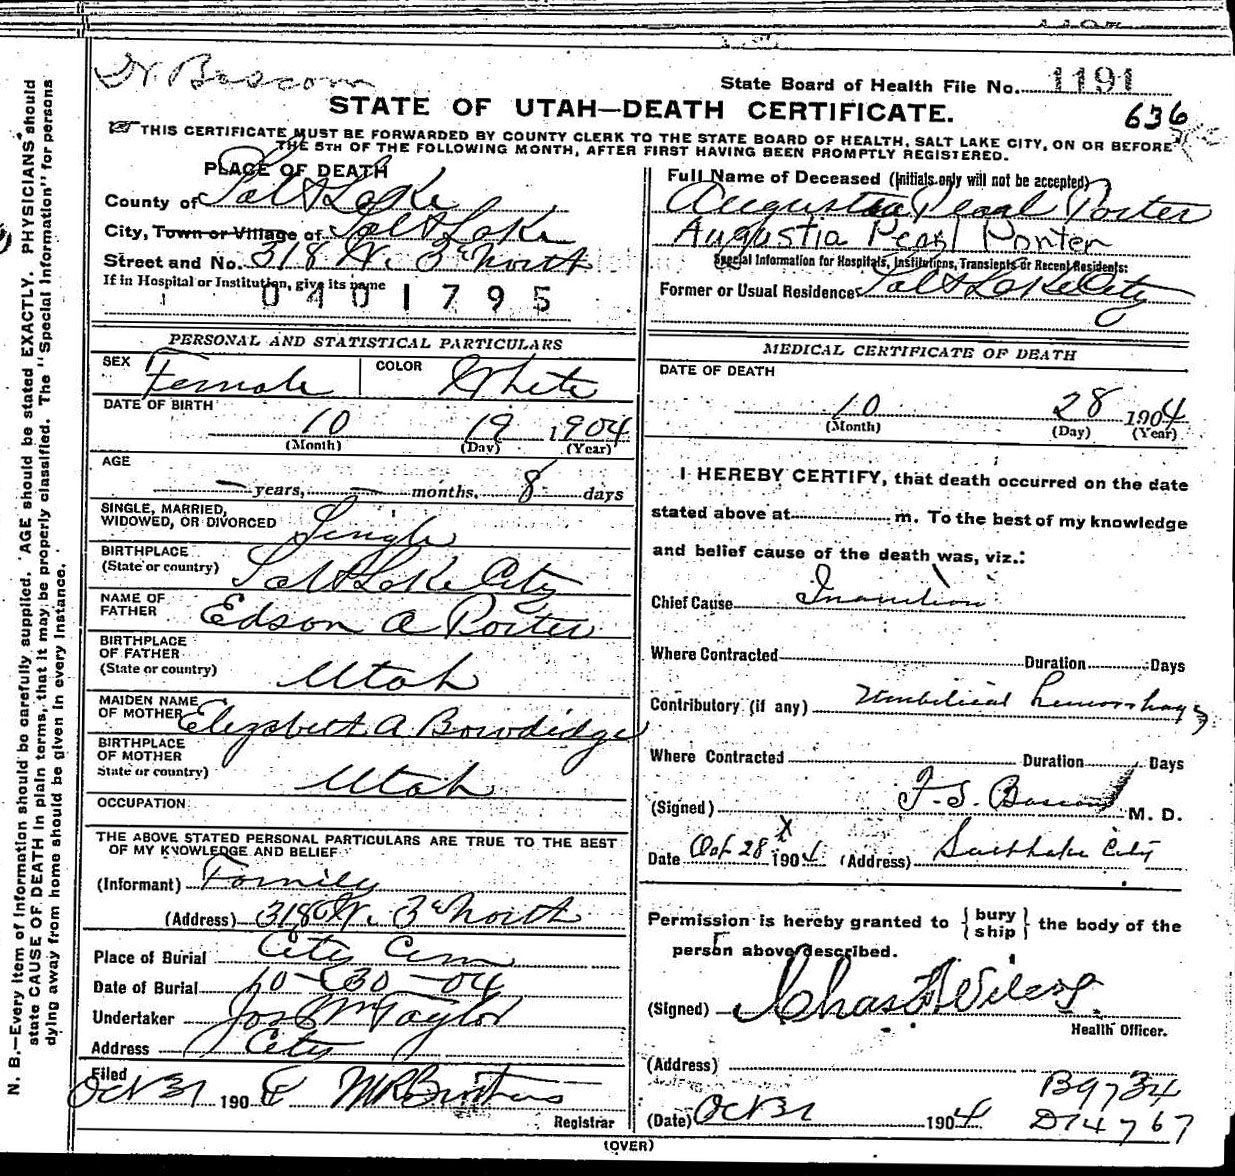 State Board of Health File No. 1191
STATE OF UTAH—DEATH CERTIFICATE.
636
THIS CERTIFICATE MUST BE FORWARDED BY COUNTY CLERK TO THE STATE BOARD OF HEALTH, SALT LAKE CITY, ON OR BEFORE
THE 5TH OF THE FOLLOWING MONTH, AFTER FIRST HAVING BEEN PROMPTLY REGISTERED.
PLACE OF DEATH
County of Salt Lake
City, Town or Village of Salt Lake
Street and No. 318 W. 3d North
If in Hospital or Institution, give its name
0401795
Full Name of Deceased (Initials only will not be accepted)
Augustia Pearl Porter
Augustia Pearl Porter
Special Information for Hospitals, Institutions, Transients or Recent Residents:
Former or Usual Residence Salt Lake City
PERSONAL AND STATISTICAL PARTICULARS
SEX Female COLOR White
DATE OF BIRTH
10 19 1904
(Month) (Day) (Year)
AGE
— years, — months, 8 days
SINGLE, MARRIED,
WIDOWED, OR DIVORCED Single
BIRTHPLACE
(State or country) Salt Lake City
NAME OF
FATHER Edson A Porter
BIRTHPLACE
OF FATHER
(State or country) Utah
MAIDEN NAME
OF MOTHER Elizabeth A Bowdidge
BIRTHPLACE
OF MOTHER
State or country) Utah
OCCUPATION
THE ABOVE STATED PERSONAL PARTICULARS ARE TRUE TO THE BEST
OF MY KNOWLEDGE AND BELIEF
(Informant) Family
(Address) 318 W. 3d North
Place of Burial City Cem
Date of Burial 10-30-04
Undertaker Jos Wm Taylor
Address City
Filed
Oct 31 1904
Registrar
MEDICAL CERTIFICATE OF DEATH
DATE OF DEATH
10 28 1904
(Month) (Day) (Year)
I HEREBY CERTIFY, that death occurred on the date
stated above at m. To the best of my knowledge
and belief cause of the death was, viz.:
Chief Cause Inanition
Where Contracted Duration Days
Contributory (if any) Umbilical hemorrhage
Where Contracted Duration Days
(Signed) F. S. Bascom M. D.
Date Oct 28 1904 (Address) Salt Lake City
Permission is hereby granted to { bury
ship } the body of the
person above described.
(Signed) Chas F. Wilcox
Health Officer.
(Address)
B9734
(Date) Oct 31 1904 D14767
(OVER)
N. B.—Every item of information should be carefully supplied. AGE should be stated EXACTLY. PHYSICIANS should
state CAUSE OF DEATH in plain terms, that it may be properly classified. The "Special Information" for persons
dying away from home should be given in every instance.